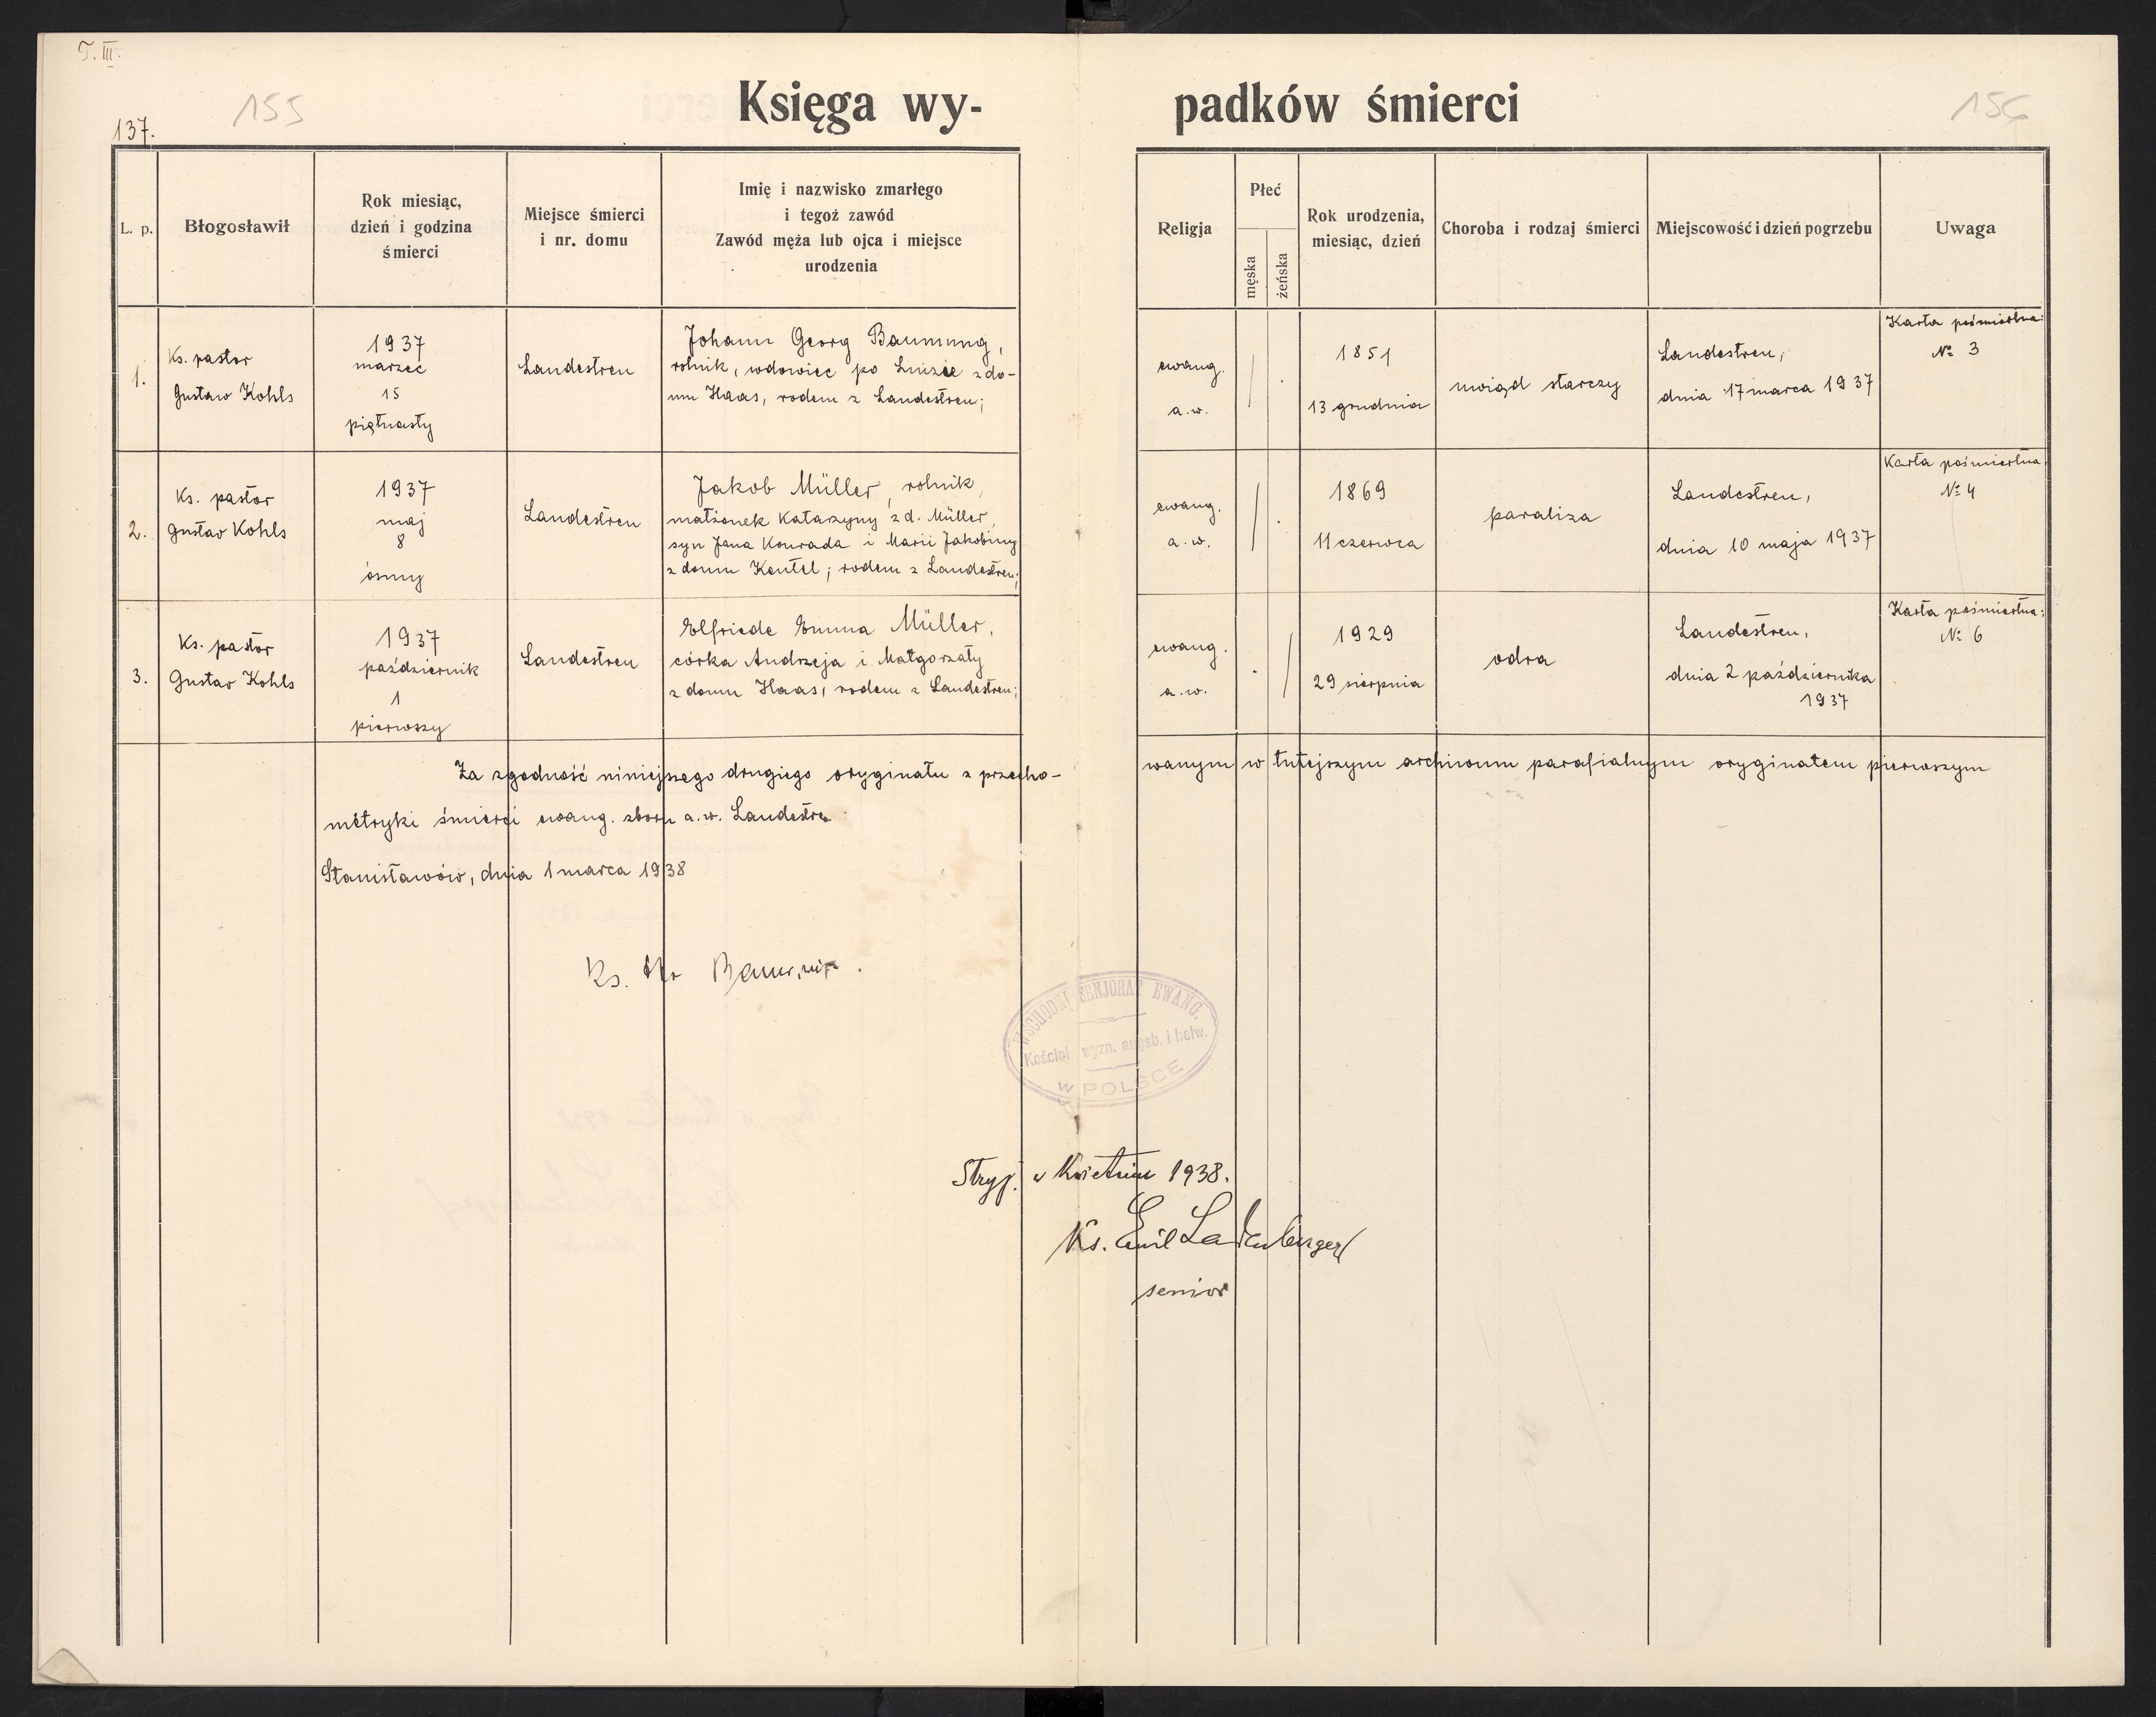 T. III.
155
156
137.
Księga wy-
padków śmierci
L. p.
Błogosławił
Rok miesiąc,
dzień i godzina
śmierci
Miejsce śmierci
i nr. domu
Imię i nazwisko zmarłego
i tegoż zawód
Zawód męża lub ojca i miejsce
urodzenia
Religja
Płeć
męska
żeńska
Rok urodzenia,
miesiąc, dzień
Choroba i rodzaj śmierci
Miejscowość i dzień pogrzebu
Uwaga
1.
Ks. pastor
Gustaw Kohls
1937
marzec
15
piętnasty
Landestreu
Johann Georg Baumung,
rolnik, wdowiec po Luizie z do-
mu Haas, rodem z Landestreu;
ewang.
a.w.
1851
13 grudnia
uwiąd starczy
Landestreu,
dnia 17 marca 1937
Karta pośmiertna:
№ 3
2.
Ks. pastor
Gustav Kohls
1937
maj
8
ósmy
Landestreu
Jakob Müller, rolnik,
małżonek Katarzyny z d. Müller,
syn Jana Konrada i Marii Jakobiny
z domu Kentel; rodem z Landestreu;
ewang.
a.w.
1869
11 czerwca
paraliża
Landestreu,
dnia 10 maja 1937
Karta pośmiertna
№ 4
3.
Ks. pastor
Gustav Kohls
1937
październik
1
pierwszy
Landestreu
Elfriede Emma Müller,
córka Andrzeja i Małgorzaty
z domu Haas, rodem z Landestreu;
ewang.
a.w.
1929
29 sierpnia
odra
Landestreu,
dnia 2 października
1937
Karta pośmiertna:
№ 6
Za zgodność niniejszego drugiego oryginału z przecho-
wanym w tutejszym archiwum parafialnym oryginałem pierwszym
metryki śmierci ewang. zboru a.w. Landestreu
Stanisławów, dnia 1 marca 1938
Ks.
WSCHODNI SENJORAT EWANG.
Kościoł wyzn. augsb. i helw.
W POLSCE
Stryj. w Kwietniu 1938.
Ks. Emil Ladenberger
senior